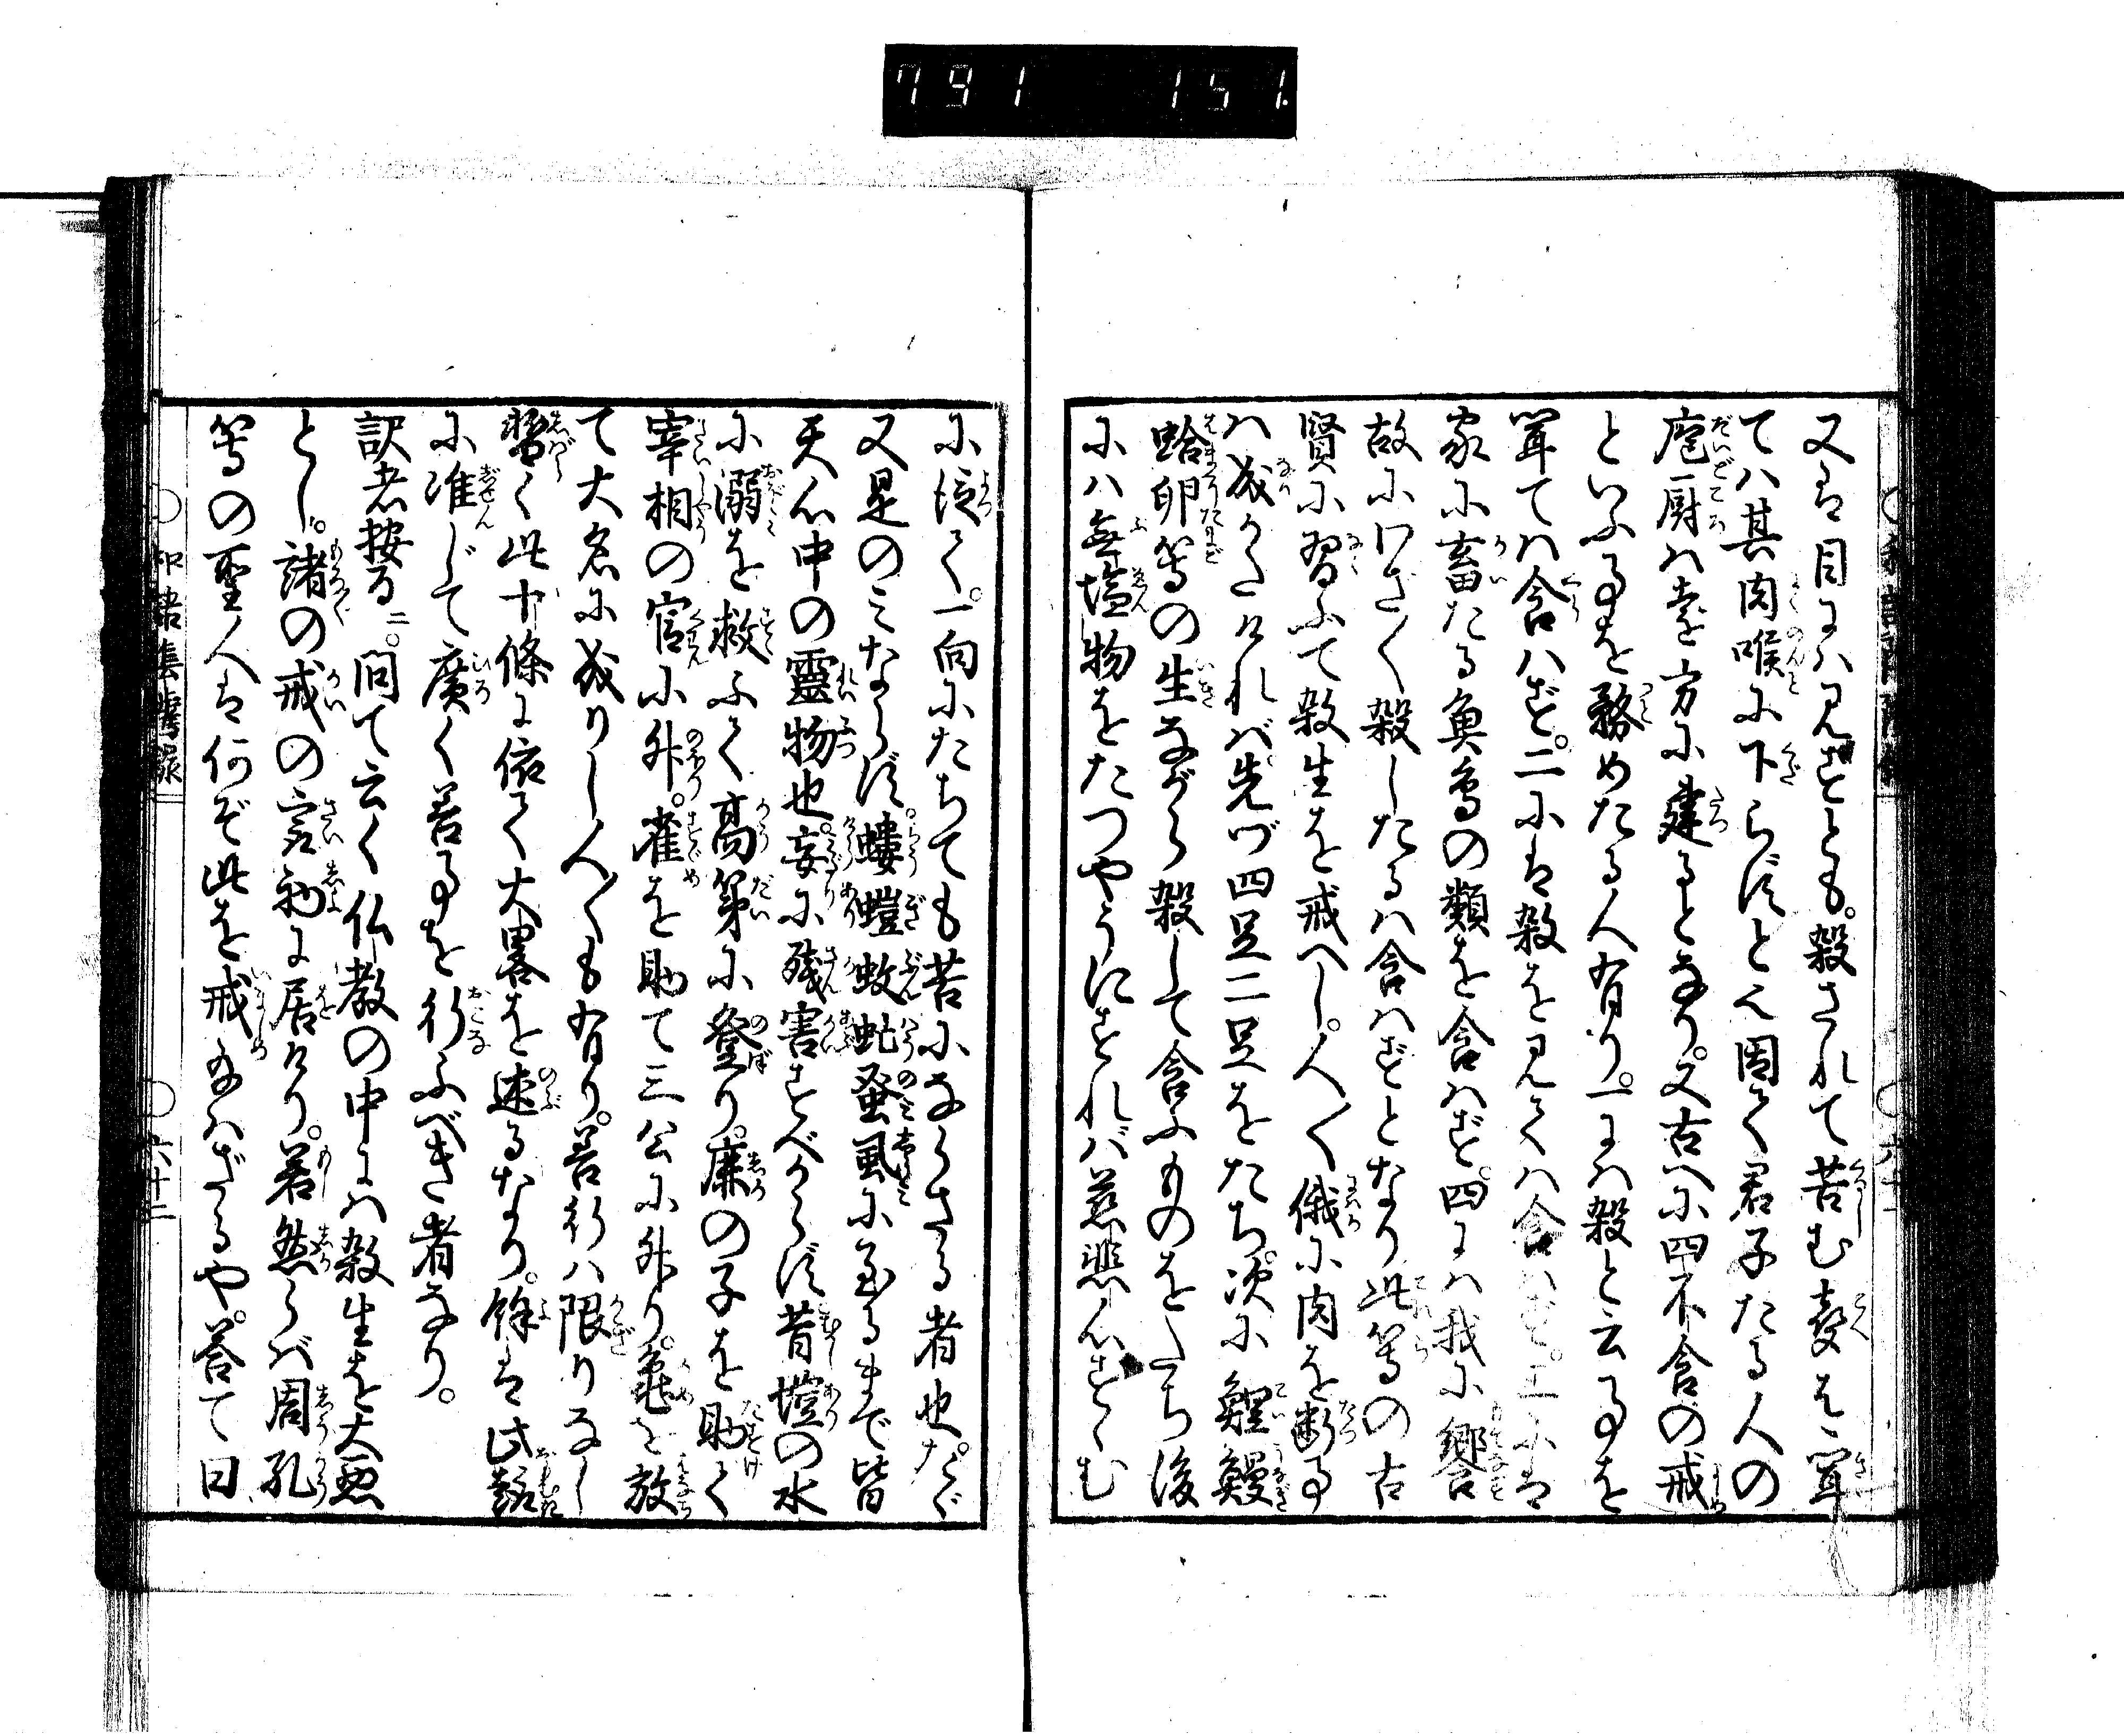 791 151.
又は目にハ見ずとも。殺されて苦む声を聞
てハ其肉喉に下らずとや因て君子たる人の
庖厨ハ遠き方に建るとなり。又古へに四不食の戒
といふ事を務めたる人有り。一にハ殺と云事を
聞てハ食ハず。二にハ殺を見てハ食ハず。三にハ
家に畜たる魚鳥の類を食ハず。四にハ我に饗
故にわざ〱殺したるハ食ハずとなり此等の古
賢に習ふて殺生を戒べし。人〱俄に肉を断事
ハ成がたけれバ先づ四足二足をたち。次に鯉鰻
蛤卵等の生ながら殺して食ふものをたち後
にハ無塩物をたつやうにすれバ慈悲心すゝむ
に従て。一向にたちても苦にならざる者也。たゞ
又是のミならず。螻螘蚊虻蚤虱に至るまで皆
天心中の霊物也。妄に残害すべからず昔螘の水
に溺を救ふて高第に登り。廉の子を助て
宰相の官に升。雀を助て三公に升り。亀を放
て大名に成りし人〱も有り。善行ハ限りなし
暫く此十條に依て大畧を述るなり。餘は此趣
に准じて廣く善事を行ふべき者なり。
訳者按る二。問て云く仏教の中にハ殺生を大悪
とし。諸の戒の宗初に居けり。若然らバ周孔
等の聖人は何ぞ此を戒めたハざるや。答て曰
六十二